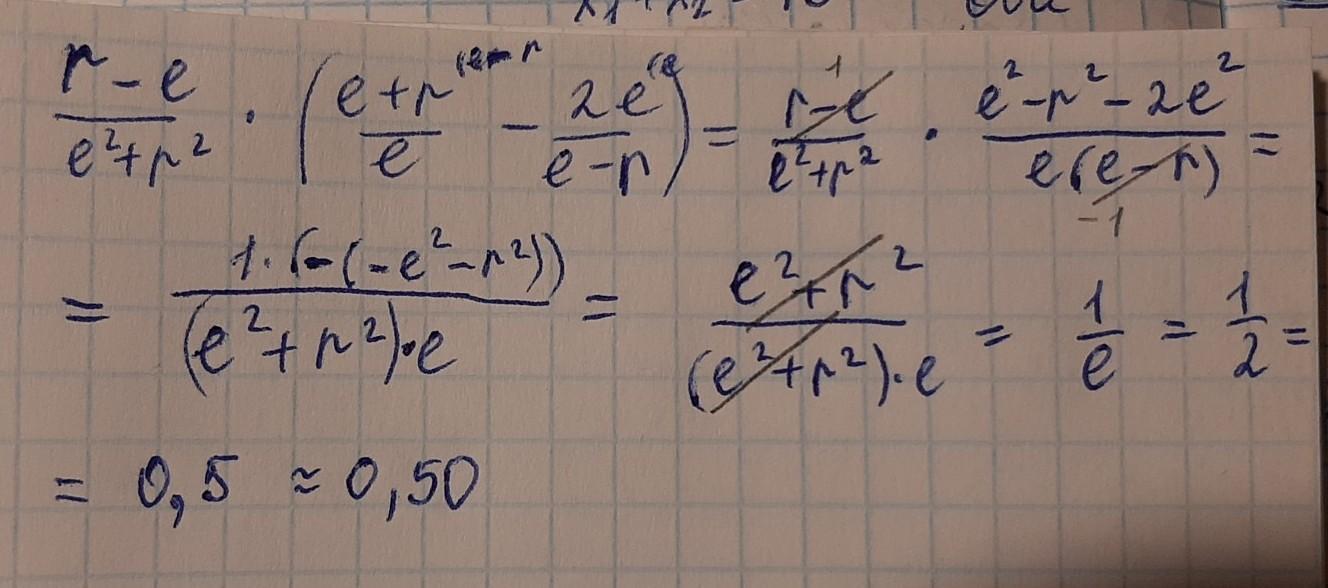 (r - e)/(e² + r²) · ((e + r)/e ⁽ᵉ⁻ʳ - 2e/(e - r) ⁽ᵉ) = (r - e)/(e² + r²) ¹ · (e² - r² - 2e²)/(e(e - r)) -1 =
= (1 · (-(-e² - r²)))/((e² + r²) · e) = (e² + r²)/((e² + r²) · e) = 1/e = 1/2 =
= 0,5 ≈ 0,50